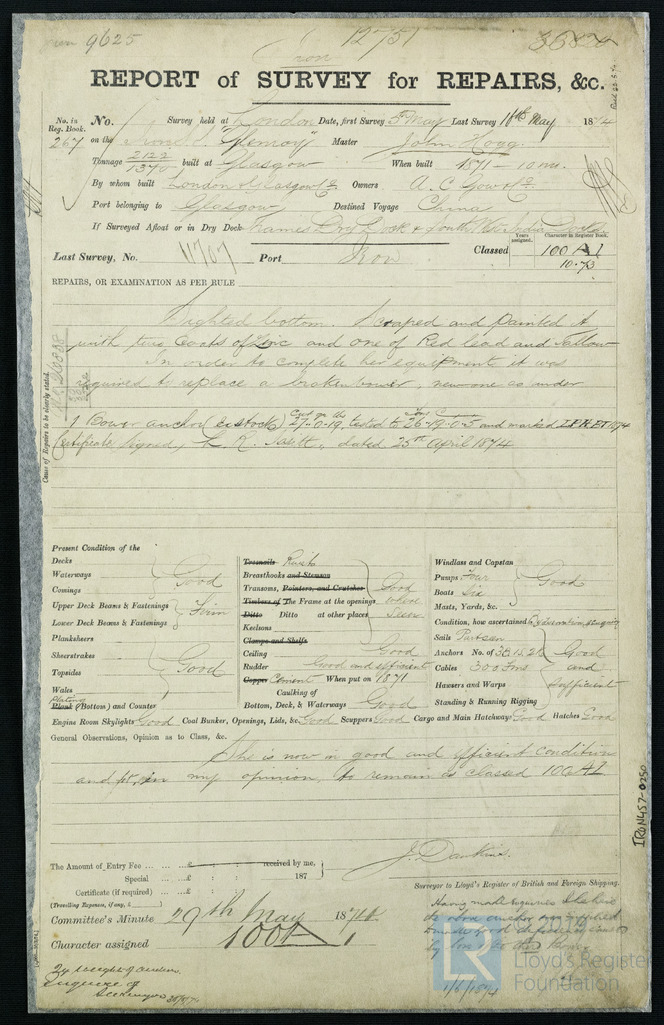 9625 12751
Iron
REPORT of SURVEY for REPAIRS, &c.
No. in Reg. Book. No. Survey held at London Date, first Survey 5 May Last Survey 11th May 1874
267 on the Iron S. "Glenroy" Master John Hogg
Tonnage 2122 / 1370 built at Glasgow When built 1871 - 10 mo.
By whom built London & Glasgow Co Owners A. C. Gow & Co.
Port belonging to Glasgow Destined Voyage China
If Surveyed Afloat or in Dry Dock Dry Dock & South W. India Docks
Last Survey, No. 11707 Port Iron Classed Years assigned. Character in Register Book. 100 A 1
10.73
REPAIRS, OR EXAMINATION AS PER RULE
Cause of Repairs to be clearly stated.
Sighted bottom. Scraped and painted it
with two Coats of Zinc and one of Red lead and Tallow
In order to complete her equipment it was
required to replace a broken bower, new one as under
1 Bower anchor Ex stock Cwt qr lbs 27-0-19, tested to Tons C 26-19-0-5 and marked 1874
Certificate signed, dated 25th April 1874
Present Condition of the
Decks
Waterways Good
Comings
Upper Deck Beams & Fastenings Firm
Lower Deck Beams & Fastenings
Planksheers
Sheerstrakes
Topsides Good
Wales
Plating Plank (Bottom) and Counter
Treenails Rivets
Breasthooks and Stemson
Transoms, Pointers, and Crutches Good
Timbers of The Frame at the openings where
Ditto Ditto at other places seen
Keelsons
Clamps and Shelfs
Ceiling Good
Rudder Good and efficient
Copper Cement When put on 1871
Caulking of
Bottom, Deck, & Waterways Good
Windlass and Capstan
Pumps Four Good
Boats Six
Masts, Yards, &c.
Condition, how ascertained By
Sails
Anchors No. of 3B. 1S. 2K Good
Cables 300 Fms and
Hawsers and Warps sufficient
Standing & Running Rigging
Engine Room Skylights Good Coal Bunker, Openings, Lids, &c. Good Scuppers Good Cargo and Main Hatchway Good Hatches Good
General Observations, Opinion as to Class, &c.
She is now in good and efficient condition
and fit, in my opinion, to remain as classed 100 A 1
The Amount of Entry Fee ... ... £ received by me,
Special ... £ : : 187
Certificate (if required) ... £ : :
(Travelling Expenses, if any, £ )
J. Dankins.
Surveyor to Lloyd's Register of British and Foreign Shipping.
Committee's Minute 29th May 1874
Character assigned 100A 1
Having made
by
1/6/1874
IRON457-0250
LR
Lloyd's Register
Foundation